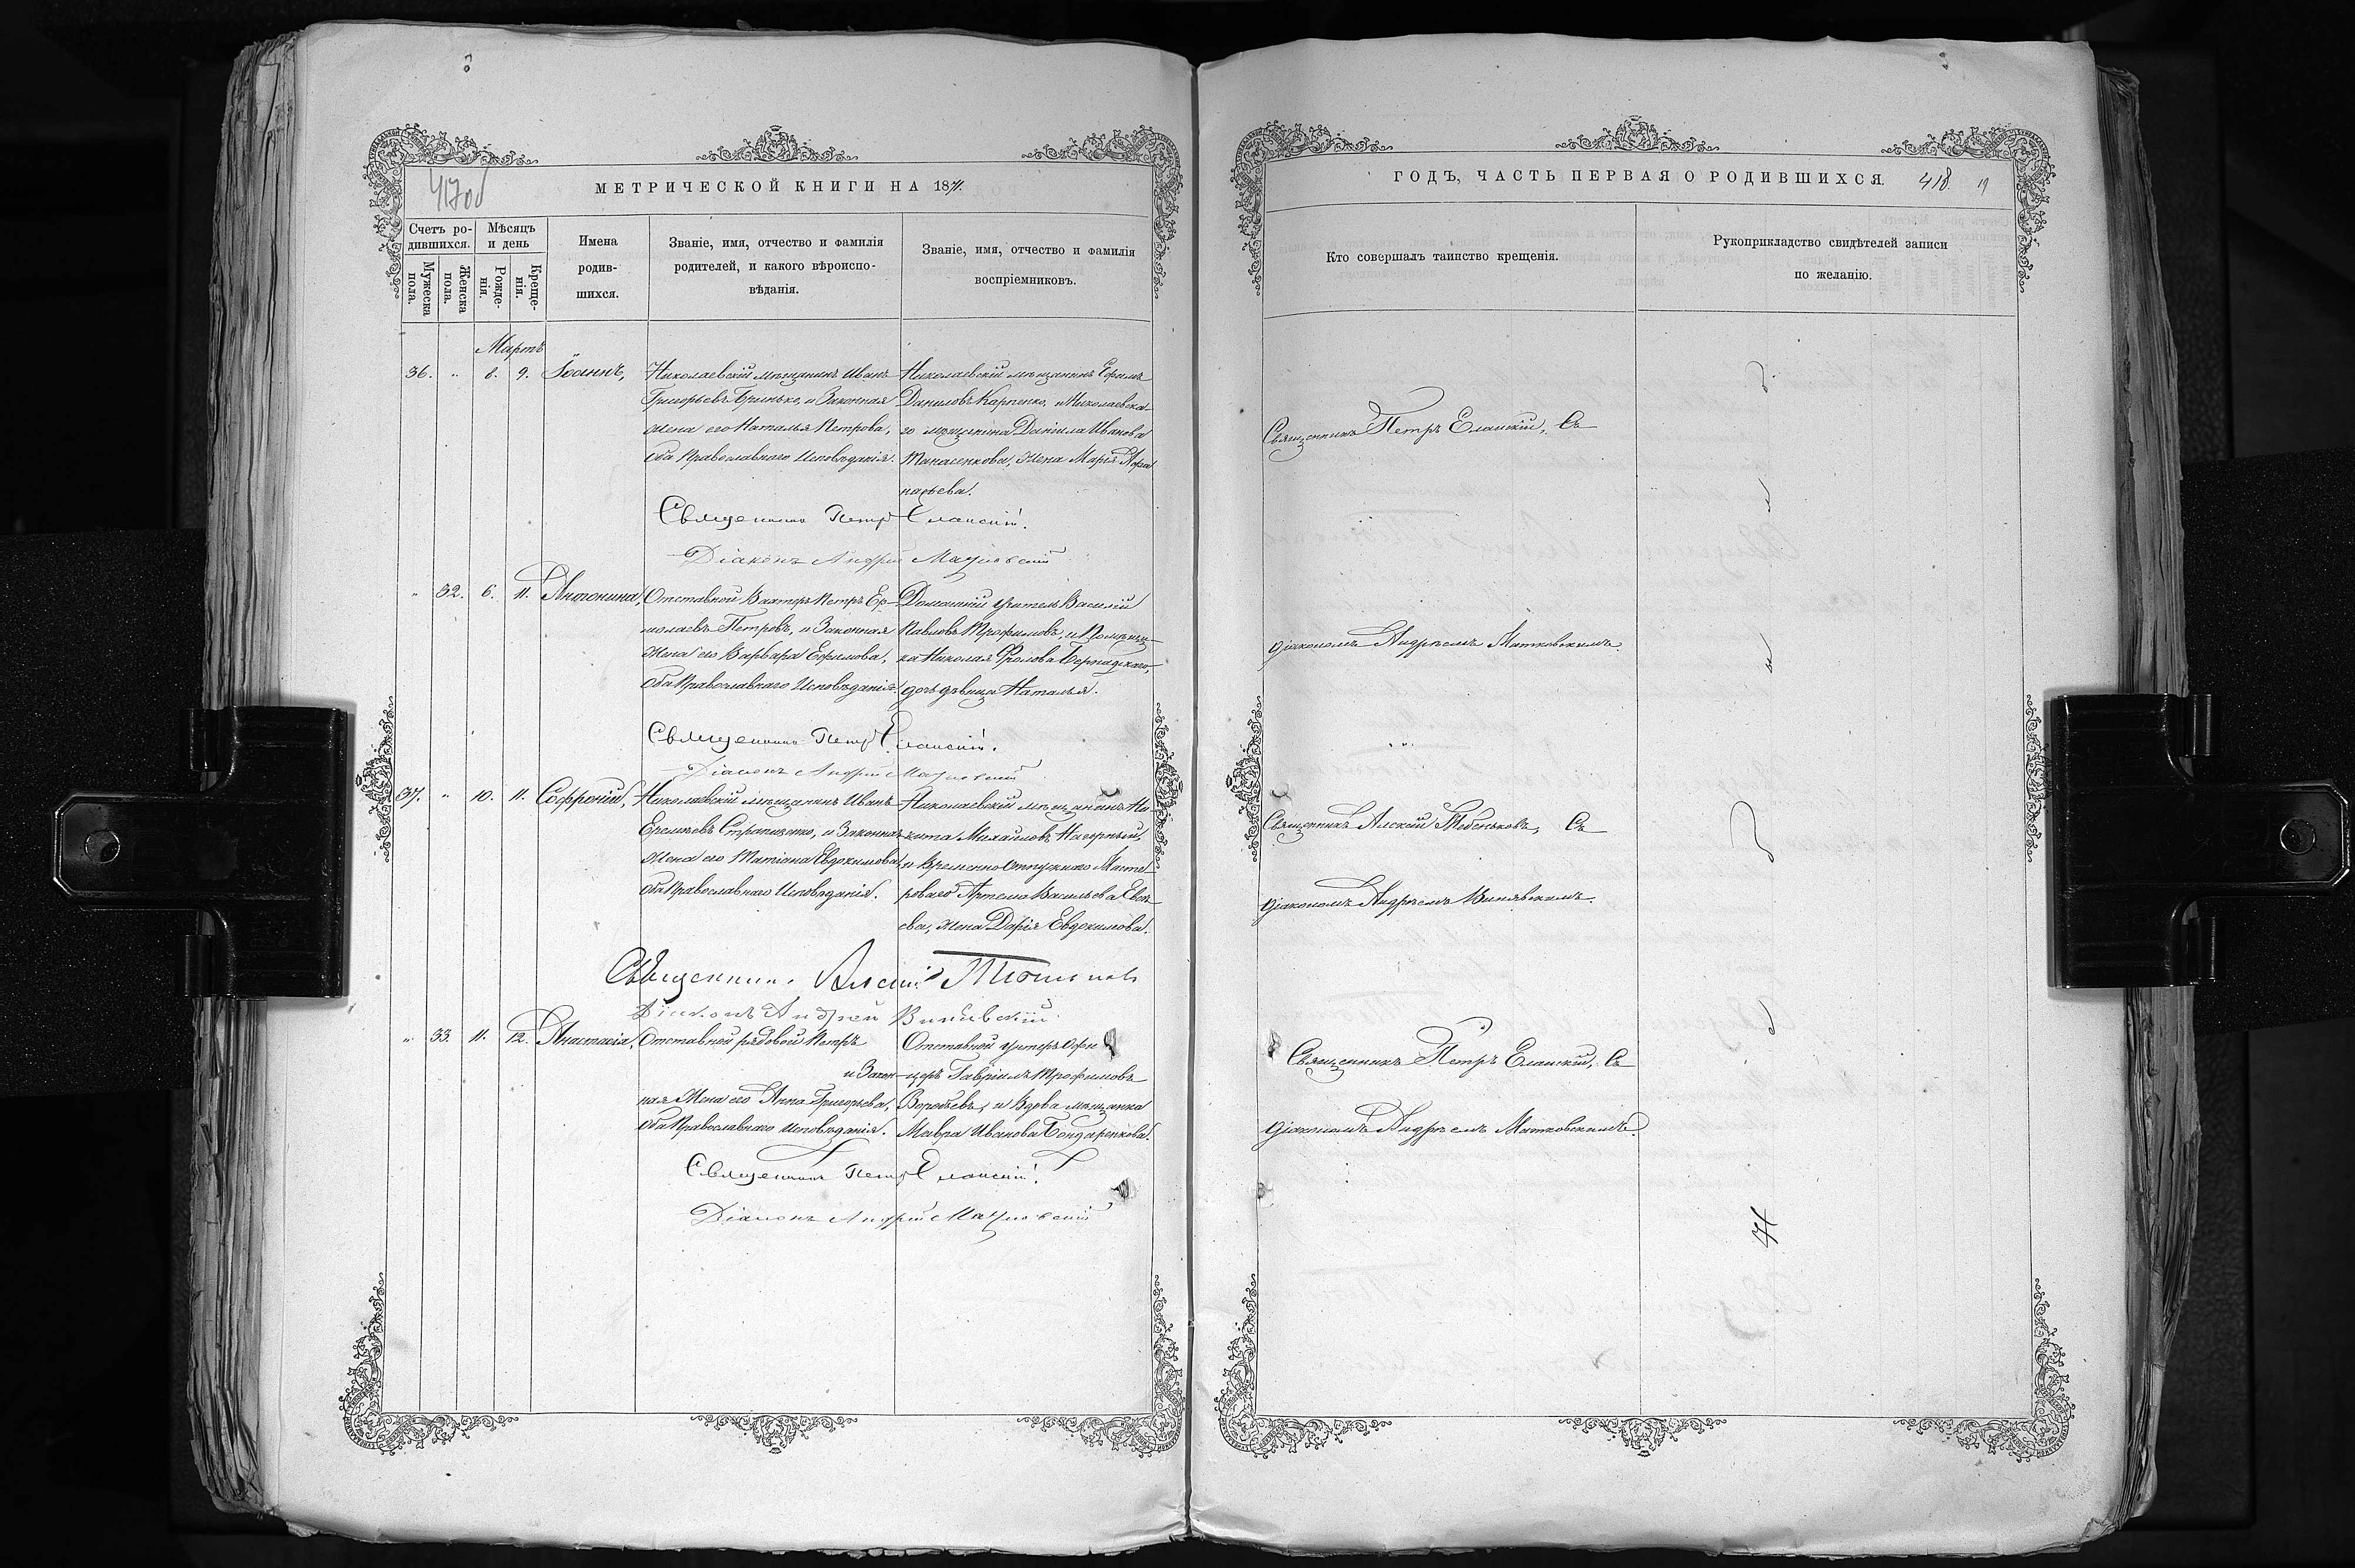 417об
МЕТРИЧЕСКОЙ КНИГИ НА 1871.
Счетъ ро-
дившихся.
Мѣсяцъ
и день
Мужеска
пола.
Женска
пола.
Рожде-
нія.
Креще-
нія.
Имена
родив-
шихся.
Званіе, имя, отчество и фамилія
родителей, и какого вѣроиспо-
вѣданія.
Званіе, имя, отчество и фамилія
воспріемниковъ.
Мартъ
36. „ 8. 9. Іоаннъ,
Николаевскій мѣщанинъ Иванъ
Григорьевъ Гринько, и Законная
жена его Наталья Петрова,
оба Православнаго Исповѣданія.
Николаевскій мѣщанинъ Ефимъ
Даниловъ Карпенко, и Николаевска-
го мѣщанина Даніила Иванова
Танасенкова, жена Марія Афа
насьева.
Священникъ Петръ Еланскій.
Діаконъ Андрей
„ 32. 6. 11. Антонина,
Отставной Вахтеръ Петръ Ер-
молаевъ Петровъ, и Законная
жена его Варвара Ефимова,
оба Православнаго Исповѣданія.
Домашній учитель Василій
Павловъ Трофимовъ, и Помѣщи-
ка Николая Фролова Бернадскаго,
дочь дѣвица Наталья.
Священникъ Петръ Еланскій.
Діаконъ Андрей
37. „ 10. 11. Софроній,
Николаевскій мѣщанинъ Иванъ
Еремѣевъ и Законная
жена его Татіана Евдокимова
оба Православнаго Исповѣданія.
Николаевскій мѣщанинъ Ни-
кита Михайловъ Нагорный,
и Временно-отпускнаго Масте-
роваго Артема Васильева Евсѣ-
ева, жена Дарія Евдокимова.
Священникъ Алексій
Діаконъ Андрей Винявскій
„ 33. 11. 12. Анастасія,
Отставной рядовой Петръ
и Закон-
ная жена его Анна Григорьева,
оба Православнаго Исповѣданія.
Отставной унтеръ Офи
церъ Гавріилъ Трофимовъ
Воробьевъ, и Вдова мѣщанка
Мавра Иванова Бондаренкова.
Священникъ Петръ Еланскій.
Діаконъ Андрей
ГОДЪ, ЧАСТЬ ПЕРВАЯ О РОДИВШИХСЯ.
418. 19
Кто совершалъ таинство крещенія.
Рукоприкладство свидѣтелей записи
по желанію.
Священникъ Петръ Еланскій, Съ
діакономъ Андреемъ Матковскимъ.
Священникъ Алексій Тебеньковъ, Съ
діакономъ Андреемъ Винявскимъ.
Священникъ Петръ Еланскій, Съ
діакономъ Андреемъ Матковскимъ.